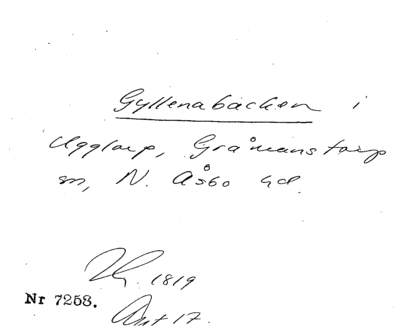 Gyllenabäcken i
Ugglarp, Gråmanstorp
sn, N. Åsbo hd.
1819
Nr 7258.
Akt 17.